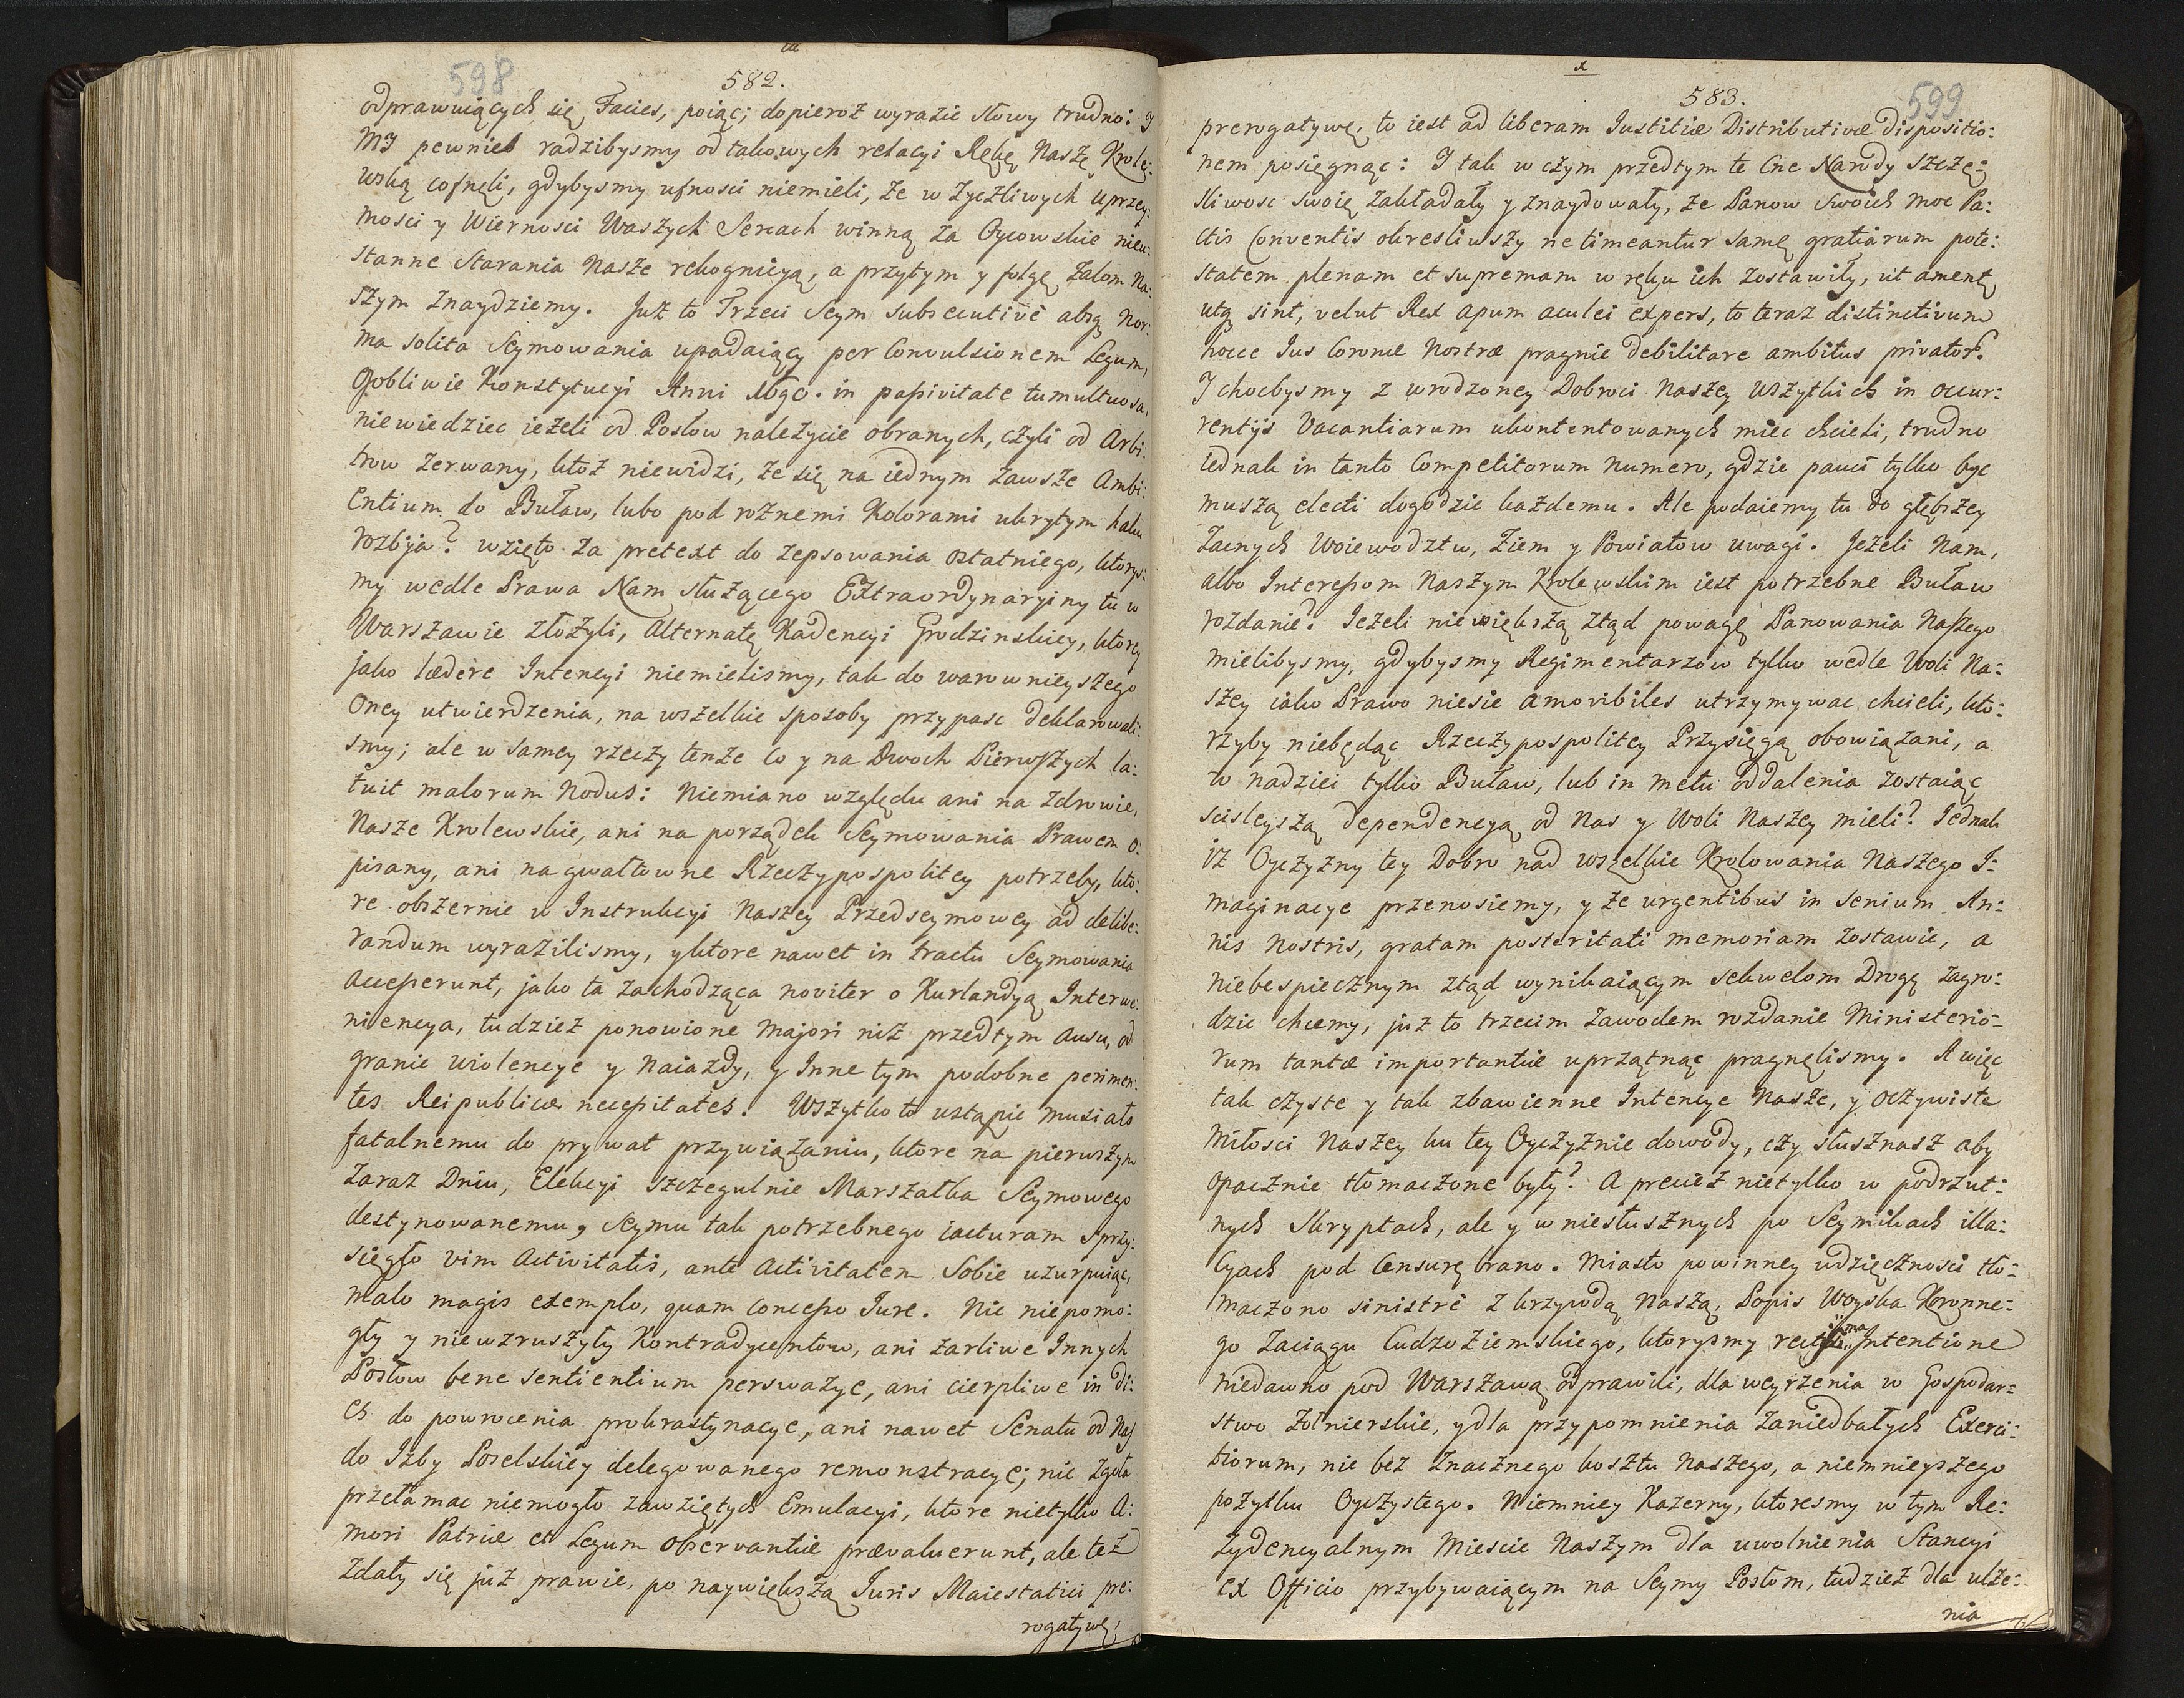 598
582.
odprawuiących się Facies, poiąc; dopieroż wyrazic słowy trudno: I
My pewnieb radzibysmy od takowych relacyi Rękę Naszę Krole:
wską cofnęli, gdybysmy ufnosci niemieli, że w życzliwych uprzey:
mosci y Wiernosci Waszych Sercach winną za Oycowskie nieu:
stanne Starania Nasze rekognicyą, a przytym y folgę żalom Na:
szym znaydziemy. Już to Trzeci Seym subsecutivè absq Nor:
ma solita Seymowania upadaiący per Convulsionem Legum,
Osobliwie Konstytucyi Anni 1690. in passivitate tumultuosa,
niewiedziec ieżeli od Posłow należycie obranych, czyli od Arbi:
trow zerwany, ktoż niewidzi, że się na iednym zawsze Ambi:
entium do Buław, lubo pod rożnemi Kolorami ukrytym haku
rozbija? wzięto za pretext do zepsowania ostatniego, ktorys:
my wedle Prawa Nam służącego Extraordynaryiny tu w
Warszawie złożyli, Alternatę Kadencyi Grodzinskiey, ktorey
jako lædere Intencyi niemielismy, tak do warownieyszego
Oney utwierdzenia, na wszelkie sposoby przypasc deklarowali:
smy; ale w samey rzeczy tenże co y na Dwoch Pierwszych la:
tuit malorum Nodus: Niemiano względu ani na zdrowie,
Nasze Krolewskie, ani na porządek Seymowania Prawem o:
pisany, ani na gwałtowne Rzeczypospolitey potrzeby, kto:
re obszernie w Instrukcyi Naszey Przedseymowey ad delibe:
randum wyrazilismy, y ktore nawet in tractu Seymowania
accesserunt, jako ta zachodząca noviter o Kurlandyą Interwe:
niiencya, tudzież ponowione majori niż przedtym ausu, od
granic wiolencye y Naiazdy, y Inne tym podobne perimen:
tes Reipublicæ necessitates. Wszytko to ustąpic musiało
fatalnemu do prywat przywiązaniu, ktore na pierwszym
zaraz Dniu, Elekcyi szczegulnie Marszałka Seymowego
destynowanemu, Seymu tak potrzebnego iacturam sprzy:
sięgło vim Activitatis, ante Activitatem Sobie uzurpuiąc,
malo magis exemplo, quam concesso Jure. Nic niepomo:
gły y niewzruszyły Kontradycentow, ani żarliwe Innych
Posłow bene sentientium perswazye, ani cierpliwe in di:
es do powrocenia prokrastynacye, ani nawet Senatu od Nas
do Izby Poselskiey delegowanego remonstracye; nic zgoła
przełamac niemogło zawziętych Emulacyi, ktore nietylko A:
mori Patriæ et Legum observantiæ prævaluerunt, ale też
zdały się już prawie, po naywiększą Juris Maiestatici pre:
rogatywę,
599
583.
prerogatywę, to iest ad liberam Justitiæ Distributivæ dispositio:
nem posięgnąc: I tak w czym przedtym te Cne Narody szczę:
sliwosc swoię zakładały y znaydowały, że Panow swoich moc Pa:
ctis Conventis okresliwszy ne timeantur samę gratiarum pote:
statem plenam et supremam w ręku ich zostawiły, ut ament
utq sint, velut Rex apum aculei expers, to teraz distinctivum
hocce Jus Coronæ Nostræ pragnie debilitare ambitus privator.
I chocbysmy z wrodzoney Dobroci Naszey wszytkich in occur:
rentijs Vacantiarum ukontentowanych miec chcieli, trudno
iednak in tanto Competitorum numero, gdzie pauci tylko byc
muszą electi dogodzic każdemu. Ale podaiemy tu do głębszey
Zacnych Woiewodztw, Ziem y Powiatow uwagi. Jeżeli Nam,
albo Interessom Naszym Krolewskim iest potrzebne Buław
rozdanie? Jeżeli niewiększą ztąd powagę Panowania Naszego
mielibysmy, gdybysmy Regimentarzow tylko wedle Woli Na:
szey iako Prawo niesie amovibiles utrzymywac chcieli, kto:
rzyby niebędąc Rzeczypospolitey Przysięgą obowiązani, a
w nadziei tylko Buław, lub in metu oddalenia zostaiąc
scisleyszą dependencyą od Nas y Woli Naszey mieli? Jednak
iż Oyczyzny tey Dobro nad wszelkie Krolowania Naszego I:
maginacye przenosiemy, y że urgentibus in senium An:
nis Nostris, gratam posteritati memoriam zostawic, a
niebespiecznym ztąd wynikaiącym sekwelom Drogę zagro:
dzic chcemy, już to trzecim zawodem rozdanie Ministerio:
rum tantæ importantiæ uprzątnąc pragnęlismy. A więc
tak czyste y tak zbawienne Intencye Nasze, y oczywiste
miłosci Naszey ku tey Oyczyznie dowody, czy słusznasz aby
opacznie tłomaczone były? A przecież nietylko w podrzut:
nych skryptach, ale y w niesłusznych po Seymikach illa:
cyach pod Censurę brano. Miasto powinney wdzięcznosci tło:
maczono sinistrè z krzywdą Naszą, Popis Woyska Koronne:
go zaciągu cudzoziemskiego, ktorysmy rectissima Intentione
niedawno pod Warszawą odprawili, dla weyrzenia w Gospodar:
stwo żołnierskie, y dla przypomnienia zaniedbałych Exerci:
tiorum, nie bez znacznego kosztu Naszego, a niemnieyszego
pożytku Oyczystego. Niemniey Kazerny, ktoresmy w tym Re:
zydencyalnym Miescie Naszym dla uwolnienia Stancyi
ex Officio przybywaiącym na Seymy Posłom, tudzież dla ulże:
nia